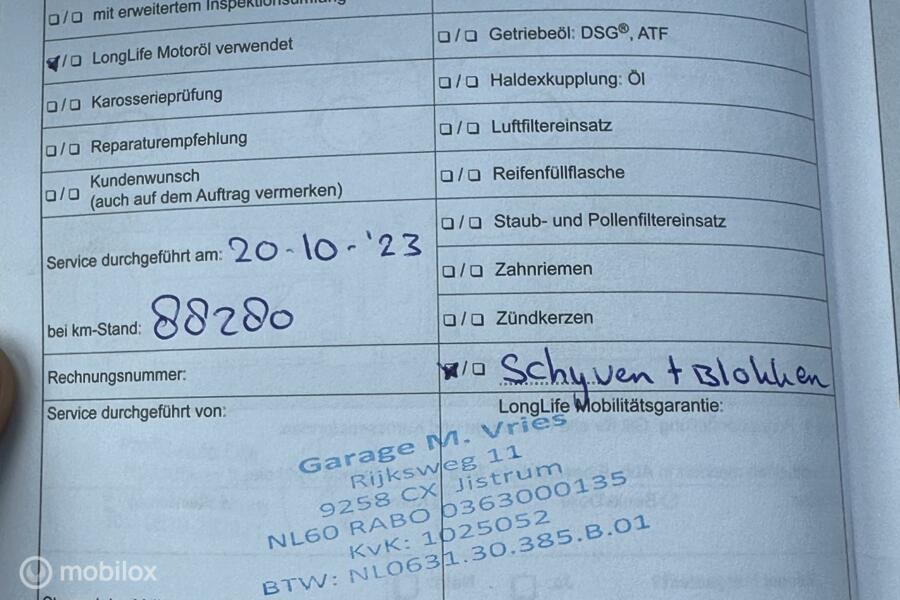 ☐/☐ mit erweitertem Inspektionsumfang
☒/☐ LongLife Motoröl verwendet
☐/☐ Karosserieprüfung
☐/☐ Reparaturempfehlung
☐/☐ Kundenwunsch
(auch auf dem Auftrag vermerken)
Service durchgeführt am: 20-10-'23
bei km-Stand: 88280
Rechnungsnummer:
Service durchgeführt von:
☐/☐ Getriebeöl: DSG®, ATF
☐/☐ Haldexkupplung: Öl
☐/☐ Luftfiltereinsatz
☐/☐ Reifenfüllflasche
☐/☐ Staub- und Pollenfiltereinsatz
☐/☐ Zahnriemen
☐/☐ Zündkerzen
☒/☐ Schyven + Blokken
LongLife Mobilitätsgarantie:
Garage M. Vries
Rijksweg 11
9258 CX Jistrum
NL60 RABO 0363000135
KvK: 1025052
BTW: NL0631.30.385.B.01
mobilox